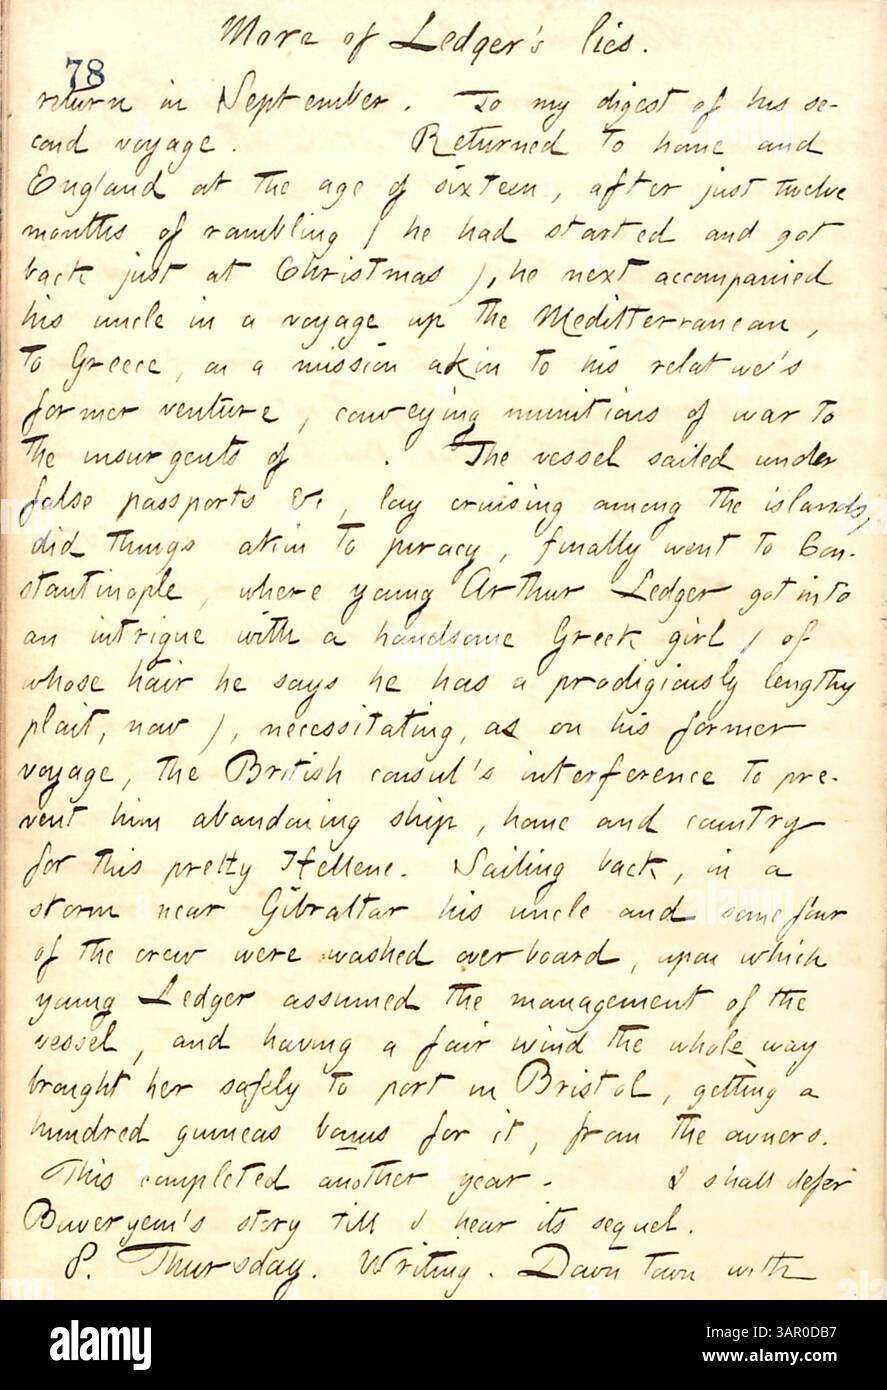 More of Ledger's lies.
78
return in September. To my digest of his se-
cond voyage. Returned to home and
England at the age of sixteen, after just twelve
months of rambling ( he had started and got
back just at Christmas ), he next accompanied
his uncle in a voyage up the Mediterranean,
to Greece, on a mission akin to his relative's
former venture, conveying munitions of war to
the insurgents of . The vessel sailed under
false passports &c, lay cruising among the islands,
did things akin to piracy, finally went to Con-
stantinople, where young Arthur Ledger got into
an intrigue with a handsome Greek girl ( of
whose hair he says he has a prodigiously lengthy
plait, now ), necessitating, as on his former
voyage, the British consul's interference to pre-
vent him abandoning ship, home and country
for this pretty Hellene. Sailing back, in a
storm near Gibraltar his uncle and some four
of the crew were washed overboard, upon which
young Ledger assumed the management of the
vessel, and having a fair wind the whole way
brought her safely to port in Bristol, getting a
hundred guineas bonus for it, from the owners.
This completed another year. I shall defer
Buweryem's story till I hear its sequel.
8. Thursday. Writing. Down town with
alamy
Image ID: 3AR0DB7
www.alamy.com